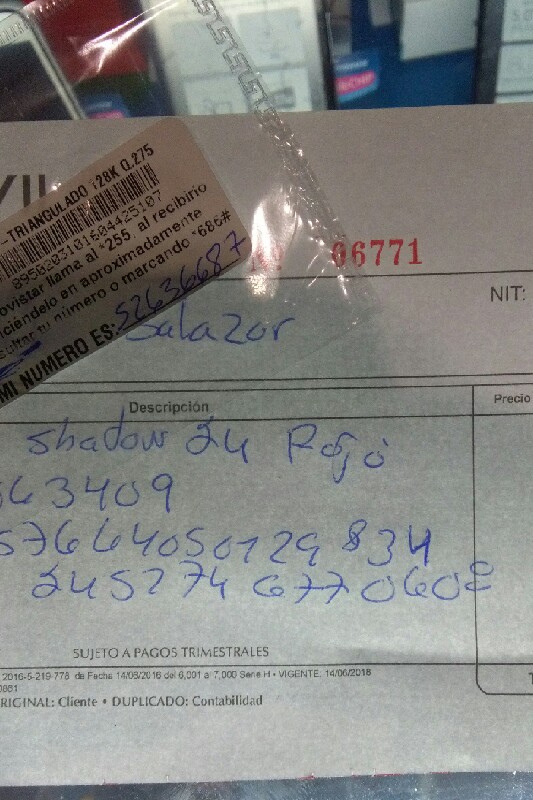 -TRIANGULADO 128K Q.275
8950203101604425107
ovistar llama al *255 al recibirlo
iciéndelo en aproximadamente
sultar tu número o marcando *686#
MI NUMERO ES: 52636687
06771
NIT:
Salazar
Descripción
Precio
Shadow 24 Rojo
63409
576664050129834
245274677060
SUJETO A PAGOS TRIMESTRALES
2016-5-219-778 de Fecha 14/06/2016 del 6,001 a 7,000 Serie H • VIGENTE: 14/06/2018
RIGINAL: Cliente • DUPLICADO: Contabilidad